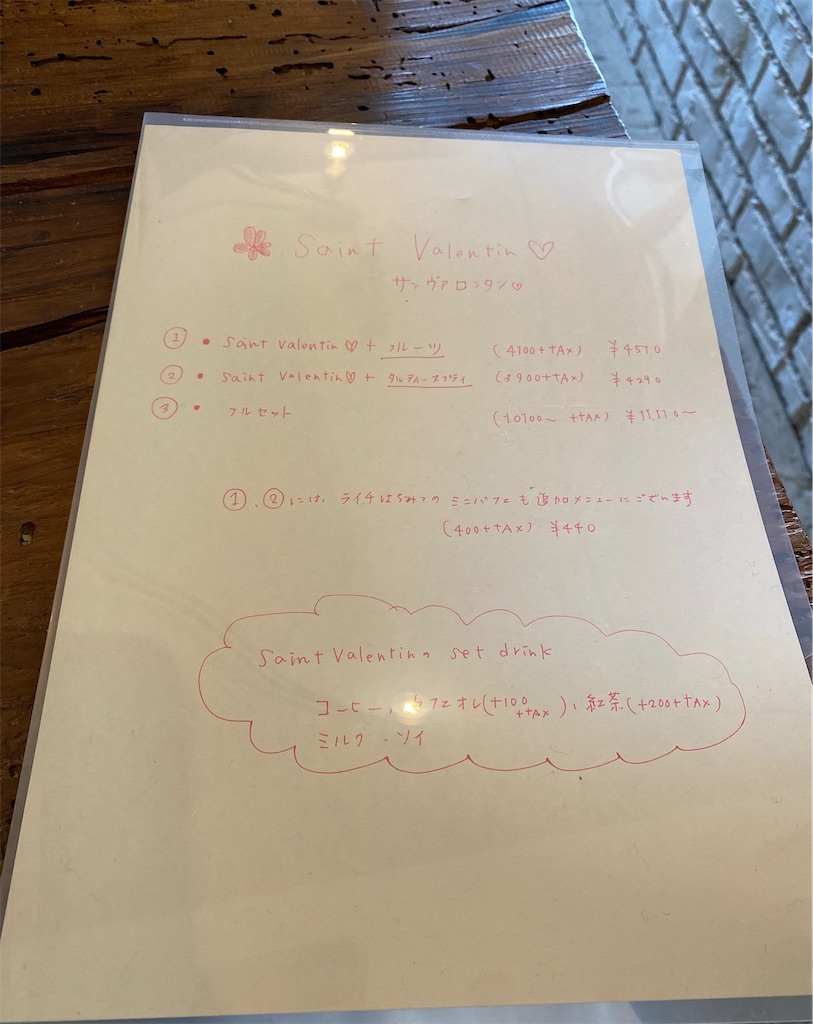 Saint Valentin♡
サンヴァロンタン♡
① • Saint Valentin♡ + フルーツ (4100++Ax) ¥4510
② • Saint Valentin♡ + (3900++Ax) ¥4290
③ • フルセット (10100〜 ++Ax) ¥11,110〜
①、②には、ライチはちみつの ミニパフェも追加メニューにございます
(400++Ax) ¥440
Saint Valentinの set drink
コーヒー、カフェオレ(+100++Ax)、紅茶(+200++Ax)
ミルク・ソイ